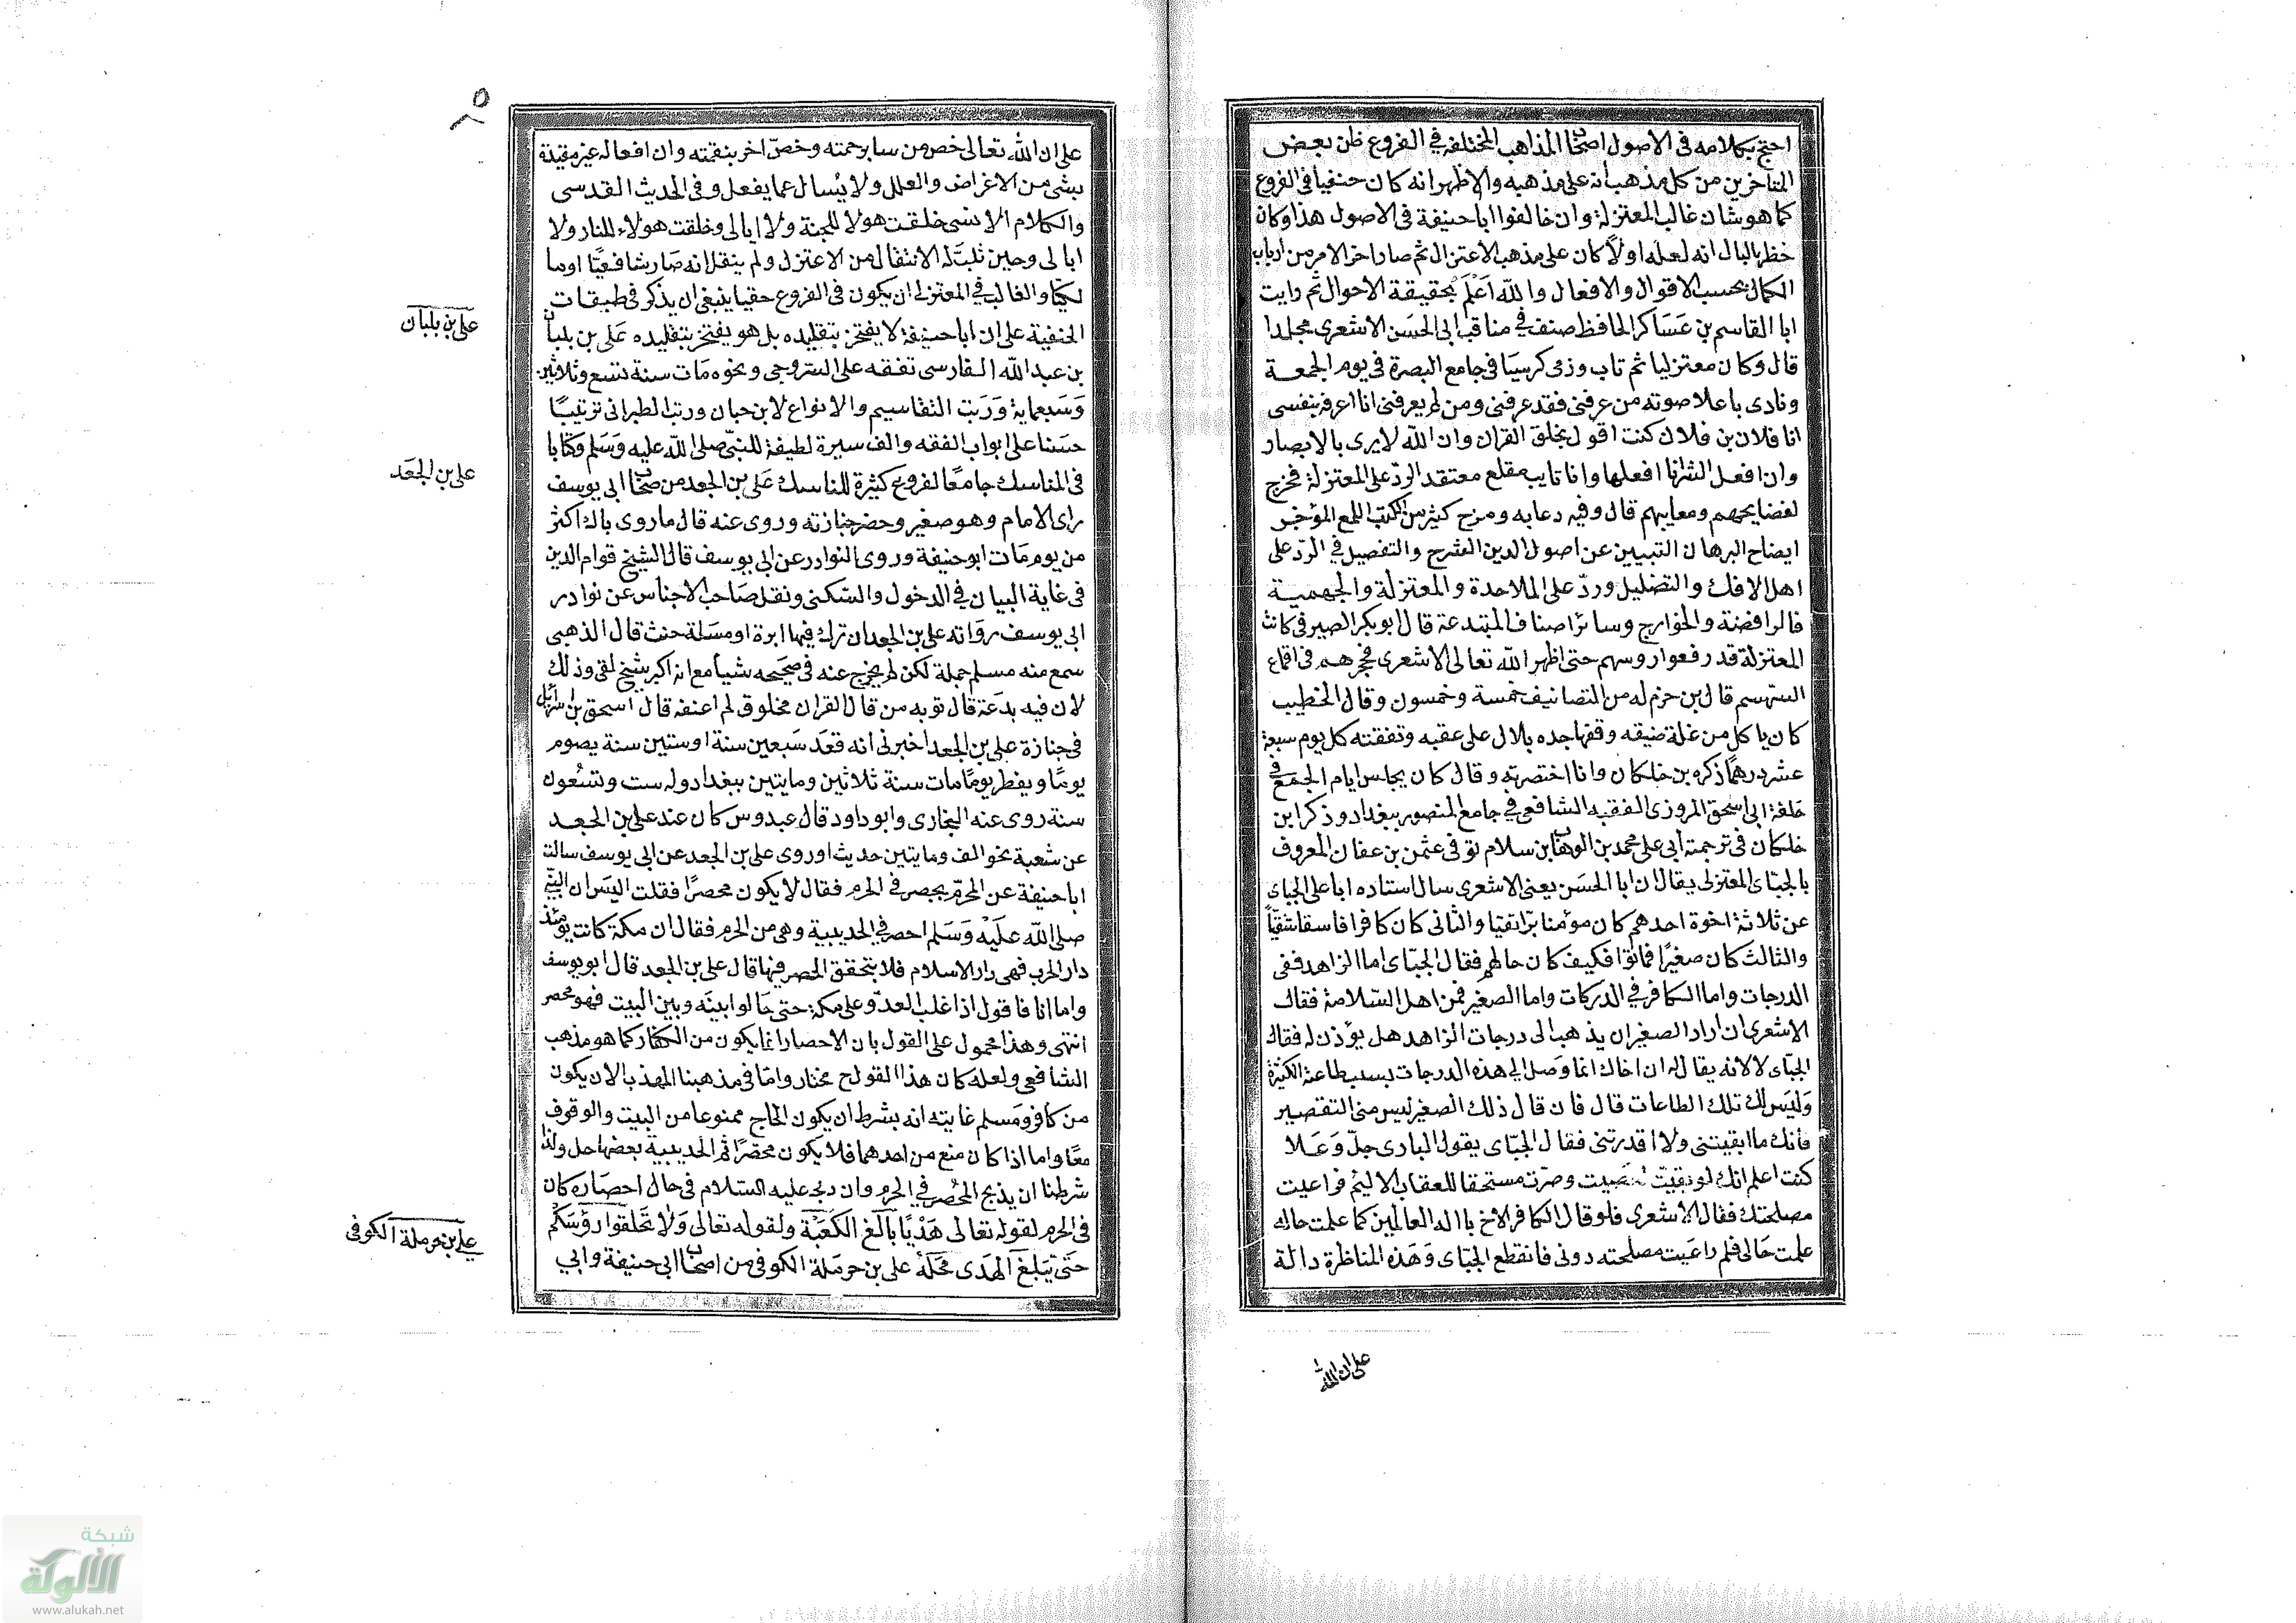 احتج بكلامه فى الاصول اصحاب المذاهب المختلفه في الفروع ظن بعض
المتاخرين من كل مذهب انه على مذهبه والاظهر انه كان حنفيا فى الفروع
كما هو شان غالب المعتزلة وان خالفوا ابا حنيفة فى الاصول هذا وكان
خطر بالبال انه لعله اولاً كان على مذهب الاعتزال ثم صار اخر الامر من ارباب
الكمال بحسب الاقوال والافعال والله اَعْلَم بحقيقة الاحوال ثم رايت
ابا القاسم بن عَسَاكر الحافظ صنف في مناقب ابى الحَسَن الاشعرى مجلدا
قال وكان معتزليا ثم تاب ورقى كرسيا فى جامع البصرة فى يوم الجمعة
ونادى باعلا صوته من عرفنى فقد عرفنى ومن لم يعرفنى انا اعرفه بنفسى
انا فلان بن فلان كنت اقول بخلق القران وان الله لايرى بالابصار
وان افعل الشرانا افعلها وانا تايب مقلع معتقد الردّ على المعتزلة فخرج
لفضايحهم ومعايبهم قال وفيه دعابه ومزح كثير من الكتب اللمع الموخر
ايضاح البرهان التبيين عن اصول الدين الشرح والتفصيل في الردّ على
اهل الافك والتضليل وردّ على الملاحدة والمعتزلة والجهمية
فالرافضة والخوارج وسائر اصناف المبتدعة قال ابوبكر الصيرفى كانت
المعتزلة قد رفعوا روسهم حتى اظهر الله تعالى الاشعرى فحجرهم فى اقماع
السمسم قال بن حزم له من التصانيف خمسة وخمسون وقال الخطيب
كان ياكل من غلة ضيعه وقفها جده بلال على عقبه ونفقته كل يوم سبعة
عشر درهمًا ذكره بن خلكان وانا اختصرته وقال كان يجلس ايام الجمع في
حلقة ابى اسحق المروزى الفقيه الشافعى في جامع المنصور ببغداد وذكر ابن
خلكان فى ترجمة ابى على محمد بن الوهاب بن سلام توفى عثمن بن عفان المعروف
بالجبّاى المعتزلى يقال ان ابا الحَسَن يعنى الاشعرى سال استاده ابا على الجباى
عن ثلاثة اخوة احدهم كان مؤمنا برّا تقيا والثانى كان كافرا فاسقا شقيّاً
والثالث كان صغيرًا فماتوا فكيف كان حالهم فقال الجبّاى اما الزاهد ففى
الدرجات واما الكافر في الدركات واما الصغير فمن اهل السّلامة فقال
الاشعرى ان اراد الصغير ان يذهب الى درجات الزاهد هل يؤذن له فقال
الجبّاى لا لانه يقال له ان اخاك انما وَصل الي هذه الدرجات بسبب طاعته الكثيرة
وَليَس لك تلك الطاعات قال فان قال ذلك الصغير ليس منى التقصير
فانك ما ابقيتنى ولا اقدرتنى فقال الجبّاى يقول البارى جلّ وَعَلا
كنت اعلم انك لو بقيت لعصيت وصرت مستحقا للعقاب الاليم فراعيت
مصلحتك فقال الاشعرى فلو قال الكافر الاخ يا اله العالمين كما علمت حاله
علمت حَالى فلم راعَيت مصلحته دونى فانقطع الجبّاى وَهَذه المناظرة دالة
على ان الله
على ان الله تعالى خص من سا برحمته وخصّ اخر بنقمته وان افعاله غير مقيدة
بشى من الاغراض والعلل ولا يُسال عما يفعل وفى الحديث القدسى
والكلام الانسى خلقت هولا للجنة ولا ابالى وخلقت هولاء للنار ولا
ابالى وحين ثبت له الانتقال من الاعتزل ولم ينقل انه صَار شافعيّا او ما
لكيّا والغالب في المعتزلى ان يكون فى الفروع حقيا ينبغى ان يذكر فى طبقات
الحنفية على ان ابا حنيفة لا يفتخر بتقليده بل هو يفتخر بتقليده عَلى بن بلبان
بن عبد الله الفارسى تفقه على السّروجى ونحوه مَات سنة تسع وثلاثين
وَسَبعماية وَرَتب التقاسيم والانواع لابن حبان ورتب الطبرانى ترتيبًا
حسَنا على ابواب الفقه والف سيرة لطيفة للنّبى صلى الله عليه وَسَلم وكتابا
فى المناسك جامعًا لفروع كثيرة للناسك عَلى بن الجعد من صحاب ابى يوسف
راى الامام وهو صغير وحضر جنازته وروى عنه قال ما روى باك اكثر
من يوم مَات ابو حنيفة وروى النوادر عن ابى يوسف قال الشيخ قوام الدين
فى غاية البيان في الدخول والسّكنى ونقل صَاحب الاجناس عن نوادر
ابى يوسف رواته على بن الجعد ان ترك فيها ابرة او مسَلة حنث قال الذهبى
سمع منه مسلم جملة لكن لم يخرج عنه فى صحيَحه شيأ مع انه اكبر شيخ لقى وذلك
لان فيه بدعَة قال توبه من قال القران مخلوق لم اعنفه قال اسحق بن اسرائيل
فى جنازة على بن الجعد اخبرنى انه قعَد سَبعين سنة او ستين سنة يصوم
يومًا ويفطر يومًا مات سنة ثلاثين ومايتين ببغداد وله ست وتسْعون
سنة روى عنه البخارى وابو داود قال عبدوس كان عند على بن الجعد
عن شعبة نحو الف ومايتين حديث او روى على بن الجعد عن ابى يوسف سالت
ابا حنيفة عن المحرم يحصر في الحرم فقال لا يكون محصرًا فقلت اليسَ ان النبيّ
صلى الله علَيه وَسَلم احصر في الحديبية وهى من الحرم فقال ان مكة كانت يومئذ
دار الحرب فهى دار الاسلام فلا يتحقق الحصر فيها قال على بن الجعد قال ابو يوسف
واما انا فاقول اذا غلب العدوّ على مكة حتى حَالوا بينَه وبين البيت فهو محصر
انتهى وهذا محمول على القول بان الاحصار انما يكون من الكفار كما هو مذهب
الشافعى ولعله كان هذا القول ح مختار وامّا فى مذهبنا المهذب الان يكون
من كافر ومَسلم غايته انه بشرط ان يكون الحاج ممنوعا من البيت والوقوف
معًا واما اذا كان منع من احدهما فلا يكون محصَرًا ثم الحديبية بعضها حل ولذا
شرطنا ان يذبح المحْصر في الحرم وان ذبح عليه السّلام فى حال احصَاره كان
فى الحرم لقوله تعالى هَدْيًا بَالغَ الكَعْبَة ولقوله تعالى وَلاَ تَحلقوا رؤسَكُمْ
حَتى يَبلغَ الَهدى محَلَهُ على بن حرمَلة الكوفى من اصحاب ابى حنيفة وابي
على بن بلبان
على بن الجعَد
على بن حرملة الكوفى
شبكة
الألوكة
www.alukah.net